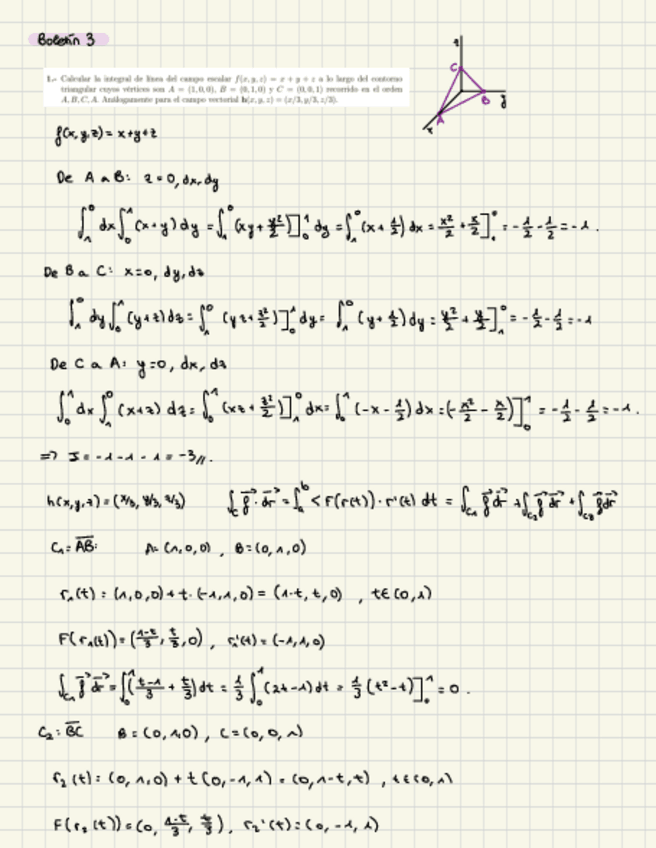 Boletín 3
z
C
B
y
A
x
1.- Calcular la integral de línea del campo escalar f(x, y, z) = x + y + z a lo largo del contorno
triangular cuyos vértices son A = (1,0,0), B = (0,1,0) y C = (0,0,1) recorrido en el orden
A, B, C, A. Análogamente para el campo vectorial h(x, y, z) = (x/3, y/3, z/3).
f(x,y,z) = x+y+z
De A a B: z=0, dx, dy
∫₁⁰ dx ∫₀¹ (x+y) dy = ∫₁⁰ (xy + y²/2)]₀¹ dy = ∫₁⁰ (x + 1/2) dx = x²/2 + x/2]₁⁰ = -1/2 - 1/2 = -1.
De B a C: x=0, dy, dz
∫₁⁰ dy ∫₀¹ (y+z) dz = ∫₁⁰ (yz + z²/2)]₀¹ dy = ∫₁⁰ (y + 1/2) dy = y²/2 + y/2]₁⁰ = -1/2 - 1/2 = -1
De C a A: y=0, dx, dz
∫₀¹ dx ∫₁⁰ (x+z) dz = ∫₀¹ (xz + z²/2)]₁⁰ dx = ∫₀¹ (-x - 1/2) dx = (-x²/2 - x/2)]₀¹ = -1/2 - 1/2 = -1.
=> I = -1 -1 -1 = -3//.
h(x,y,z) = (x/3, y/3, z/3) ∫_C f⃗ · dr⃗ = ∫ₐᵇ < F(r(t)) · r'(t) dt = ∫_C₁ f⃗ dr⃗ + ∫_C₂ f⃗ dr⃗ + ∫_C₃ f⃗ dr⃗
C₁ = AB: A = (1,0,0) , B = (0,1,0)
r₁(t) = (1,0,0) + t·(-1,1,0) = (1-t, t, 0) , t∈(0,1)
F(r₁(t)) = (1-t/3, t/3, 0) , r₁'(t) = (-1,1,0)
∫_C₁ f⃗ dr⃗ = ∫₀¹ (t-1/3 + t/3) dt = 1/3 ∫₀¹ (2t-1) dt = 1/3 (t²-t)]₀¹ = 0.
C₂: BC B = (0,1,0) , C = (0,0,1)
r₂(t) = (0,1,0) + t(0,-1,1) = (0,1-t,t) , t∈(0,1)
F(r₂(t)) = (0, 1-t/3, t/3) , r₂'(t) = (0,-1,1)